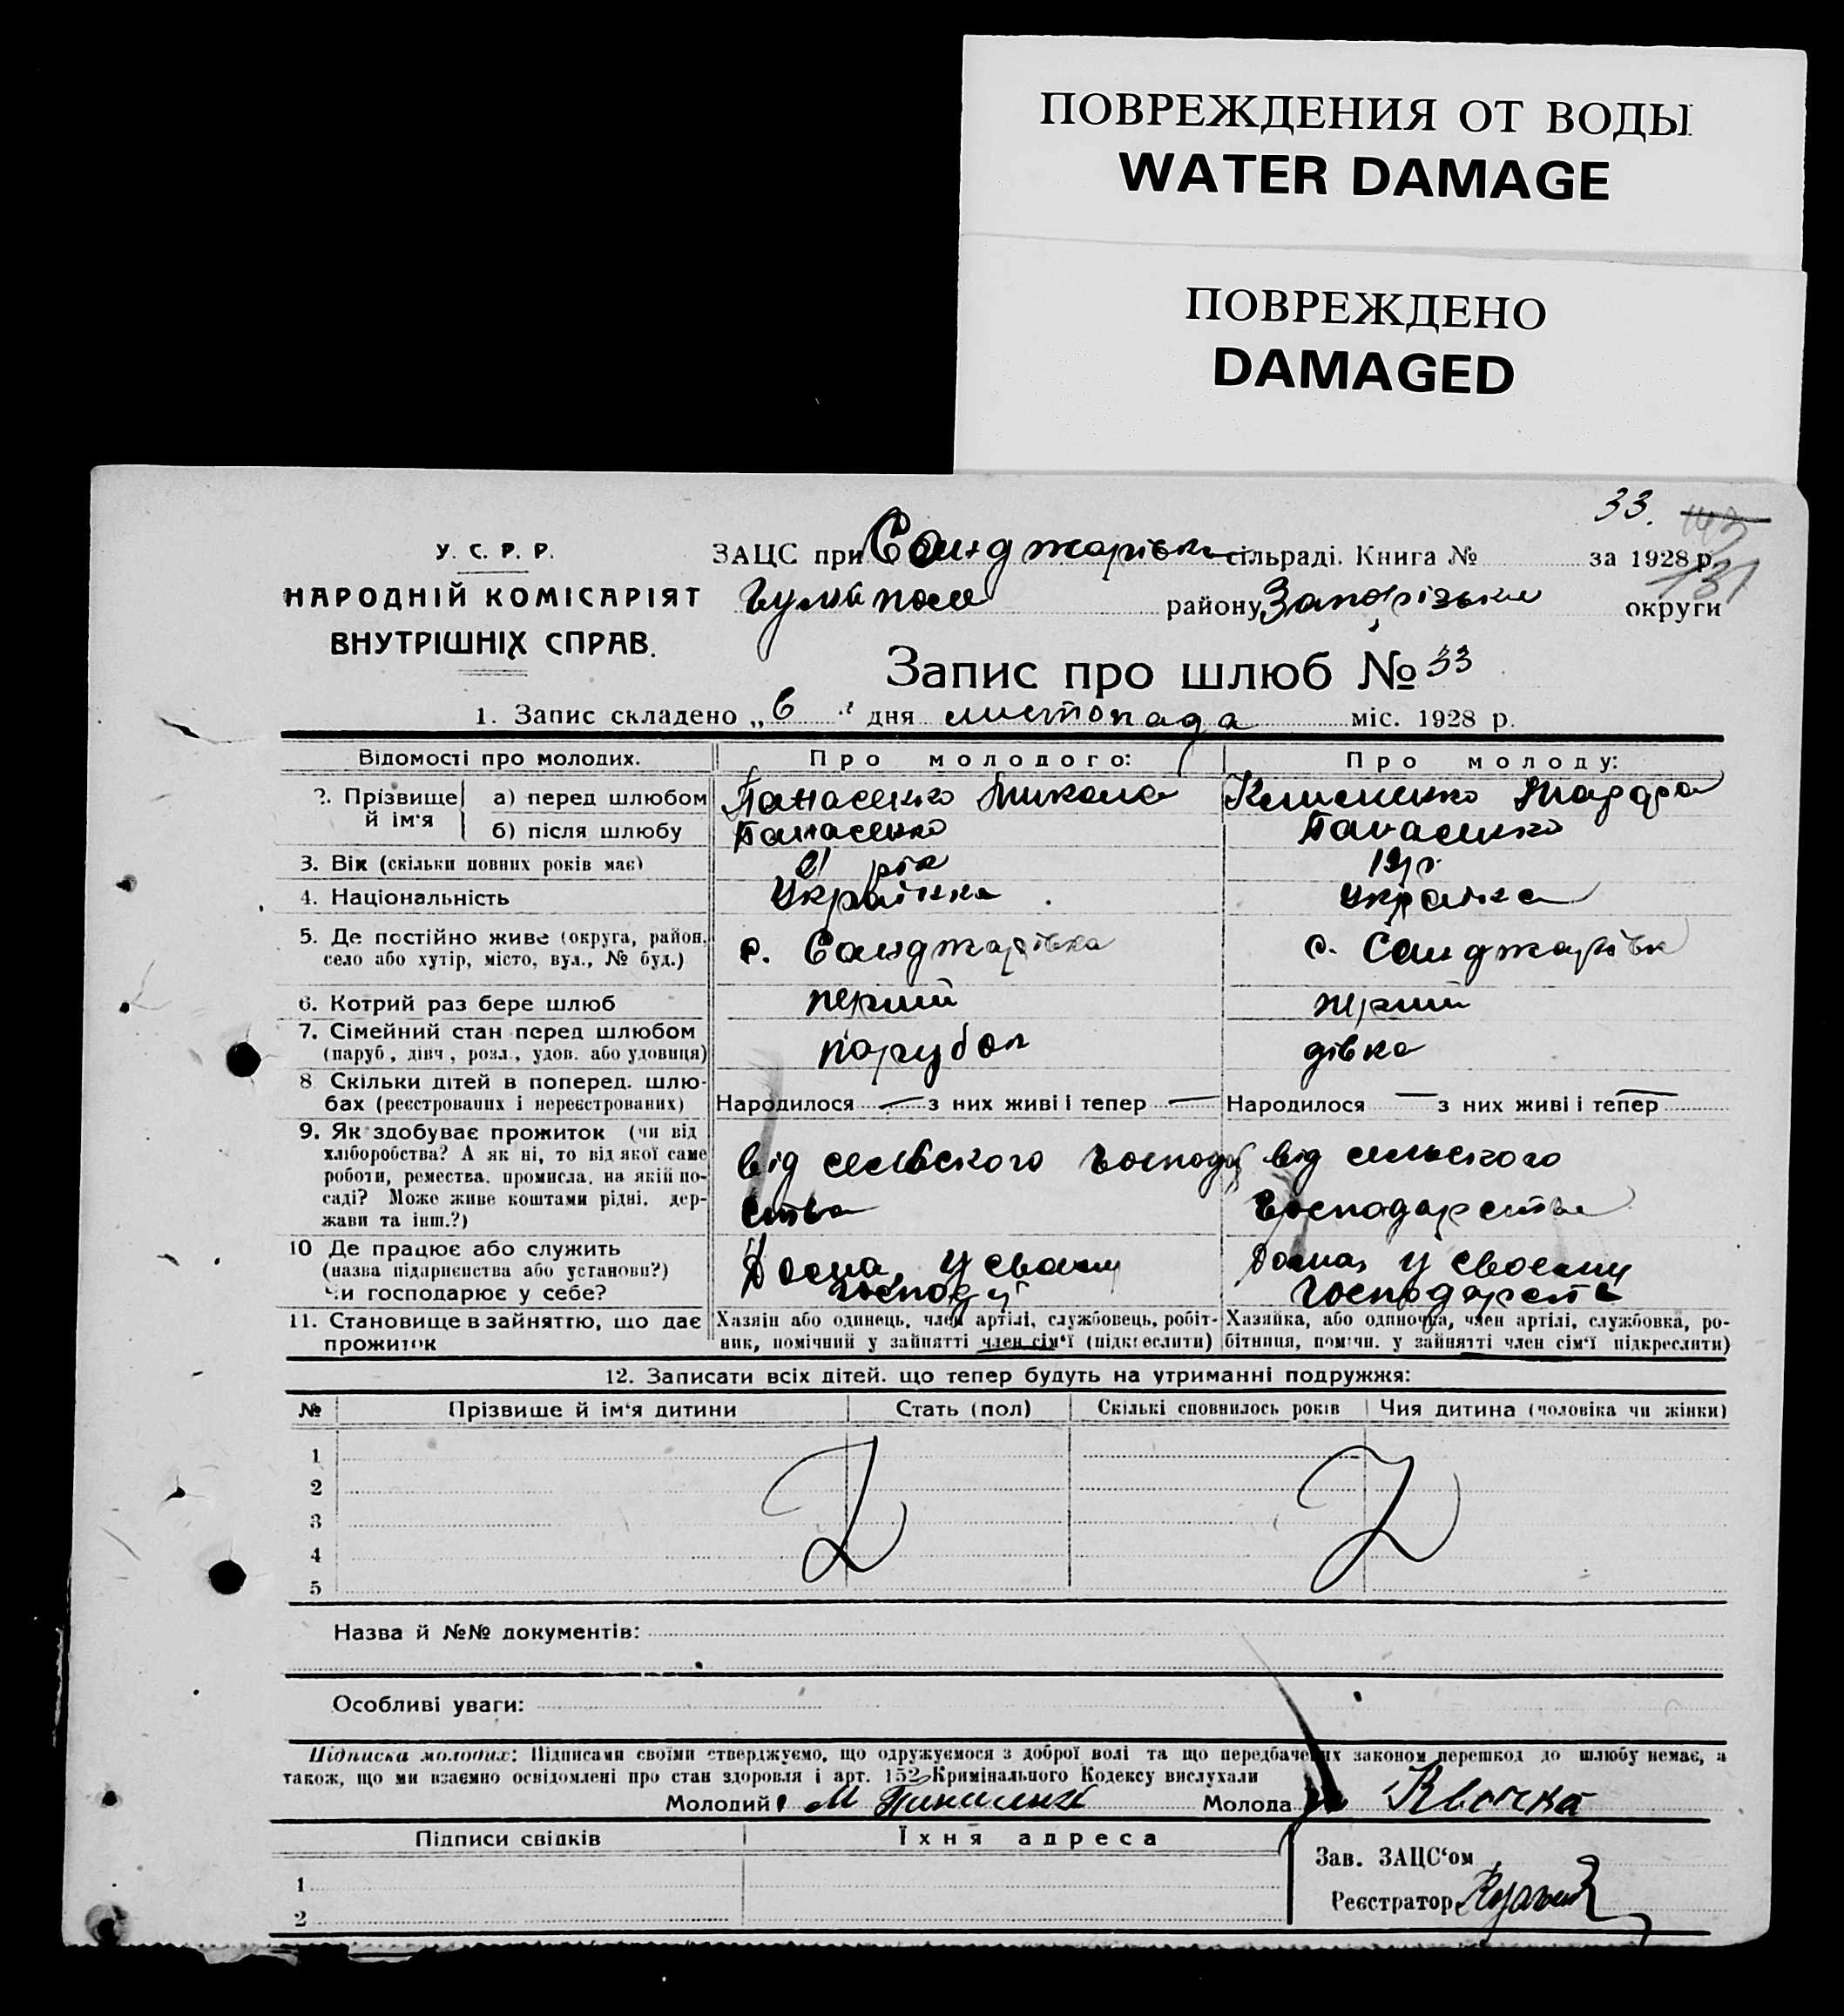 ПОВРЕЖДЕНИЯ ОТ ВОДЫ
WATER DAMAGE
ПОВРЕЖДЕНО
DAMAGED
33.
У. С. Р. Р.
НАРОДНІЙ КОМІСАРІЯТ
ВНУТРІШНІХ СПРАВ.
ЗАЦС при Санджарівськ сільраді. Книга № за 1928 р.
131
району Запорізьки округи
Запис про шлюб № 33
1. Запис складено „ 6 " дня листопада міс. 1928 р.
Відомості про молодих. Про молодого: Про молоду:
2. Прізвище й ім'я а) перед шлюбом Панасенко Микола Клименко
б) після шлюбу Панасенко Панасенко
3. Вік (скільки повних років має) 21 рік 19 р.
4. Національність Українка Українка
5. Де постійно живе (округа, район, с. Санджарівка с. Санджарівк
село або хутір, місто, вул., № буд.)
6. Котрий раз бере шлюб перший перший
7. Сімейний стан перед шлюбом парубок дівка
(паруб, дівч, розл., удов. або удовиця)
8 Скільки дітей в поперед. шлю-
бах (реєстрованих і нереєстрованих) Народилося — з них живі і тепер — Народилося — з них живі і тепер —
9. Як здобуває прожиток (чи від
хліборобства? А як ні, то від якої саме від сельского господар від сельского
роботи, ремества, промисла, на якій по-
саді? Може живе коштами рідні, дер- ства господарства
жави та інш.?)
10 Де працює або служить Дома, у своем Дома, у своему
(назва підприємства або установи?) господ господарств
чи господарює у себе?
11. Становище в зайняттю, що дає Хазяїн або одинець, член артілі, службовець, робіт- Хазяйка, або одиночка, член артілі, службовка, ро-
прожиток ник, помічний у зайнятті член сім'ї (підкреслити) бітниця, помічн. у зайнятті член сім'ї підкреслити)
12. Записати всіх дітей, що тепер будуть на утриманні подружжя:
№ Прізвище й ім'я дитини Стать (пол) Скількі сповнилось років Чия дитина (чоловіка чи жінки)
1
2
3
4
5
Назва й №№ документів:
Особливі уваги:
Підписка молодих: Підписами своїми стверджуємо, що одружуємося з доброї волі та що передбачених законом перешкод до шлюбу немає, а
також, що ми взаємно освідомлені про стан здоровля і арт. 152 Кримінального Кодексу вислухали
Молодий М Молода
Підписи свідків Їхня адреса
Зав. ЗАЦС'ом
1
Реєстратор
2